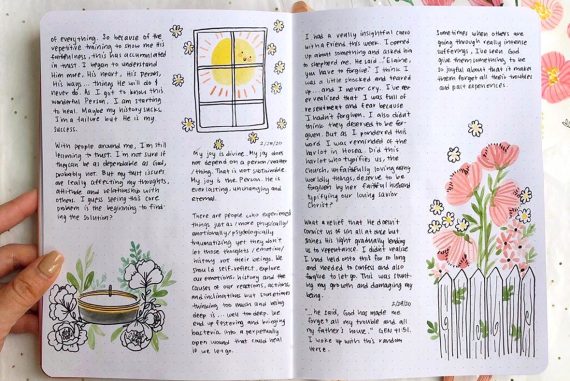 of everything. So because of the
repetitive training to show me His
faithfulness, this has accumulated
in trust. I began to understand
Him more. His heart, His person,
His ways... things He will do &
never do. As I got to know this
wonderful Person, I am starting
to heal. Maybe my history sucks,
I'm a failure but He is my
success.
With people around me, I'm still
learning to trust. I'm not sure if
they can be as dependable as God,
probably not. But my trust issues
are really affecting my thoughts,
attitude and relationship with
others. I guess seeing this core
problem is the beginning to find-
ing the solution?
2/19/20
My joy is divine. My joy does
not depend on a person/matter
/thing. That is not sustainable.
My joy is the Person. He is
everlasting, unchanging and
eternal.
There are people who experienced
things just as/more physically/
emotionally/psychologically
traumatizing yet they don't
let those thoughts/emotion/
history rot their beings. We
should self-reflect, explore
our emotions/history and the
causes of our reactions, actions,
and inclinations but sometimes
thinking too much and being
deep is... well too deep. We
end up festering and bringing
bacteria into a perpetually
open wound that could heal
if we let go.
I had a really insightful convo
with a friend this week. I opened
up about something and asked him
to shepherd me. He said, "Elaine,
you have to forgive." I think I
was a little shocked and teared
up... and I never cry. I've nev-
er realized that I was full of
resentment and fear because
I hadn't forgiven. I also didn't
think they deserved to be for-
given. But as I pondered this
word I was reminded of the
harlot in Hosea. Did this
harlot who typifies us, the
Church, unfaithfully loving many
worldly things, deserve to be
forgiven by her faithful husband
typifying our loving savior
Christ?
What a relief that He doesn't
convict us of sin all at once but
shines His light gradually leading
us to repentance. I didn't realize
I had held onto this for so long
and needed to confess and also
forgive to let go. This was stunt-
ing my growth and damaging my
being.
2/20/20
"...he said, God has made me
forget all my trouble and all
my father's house." GEN 41:51.
I woke up with this random
verse.
Sometimes when others are
going through really intense
sufferings, I've seen God
give them something to be
so joyful about that it makes
them forget all their troubles
and past experiences.